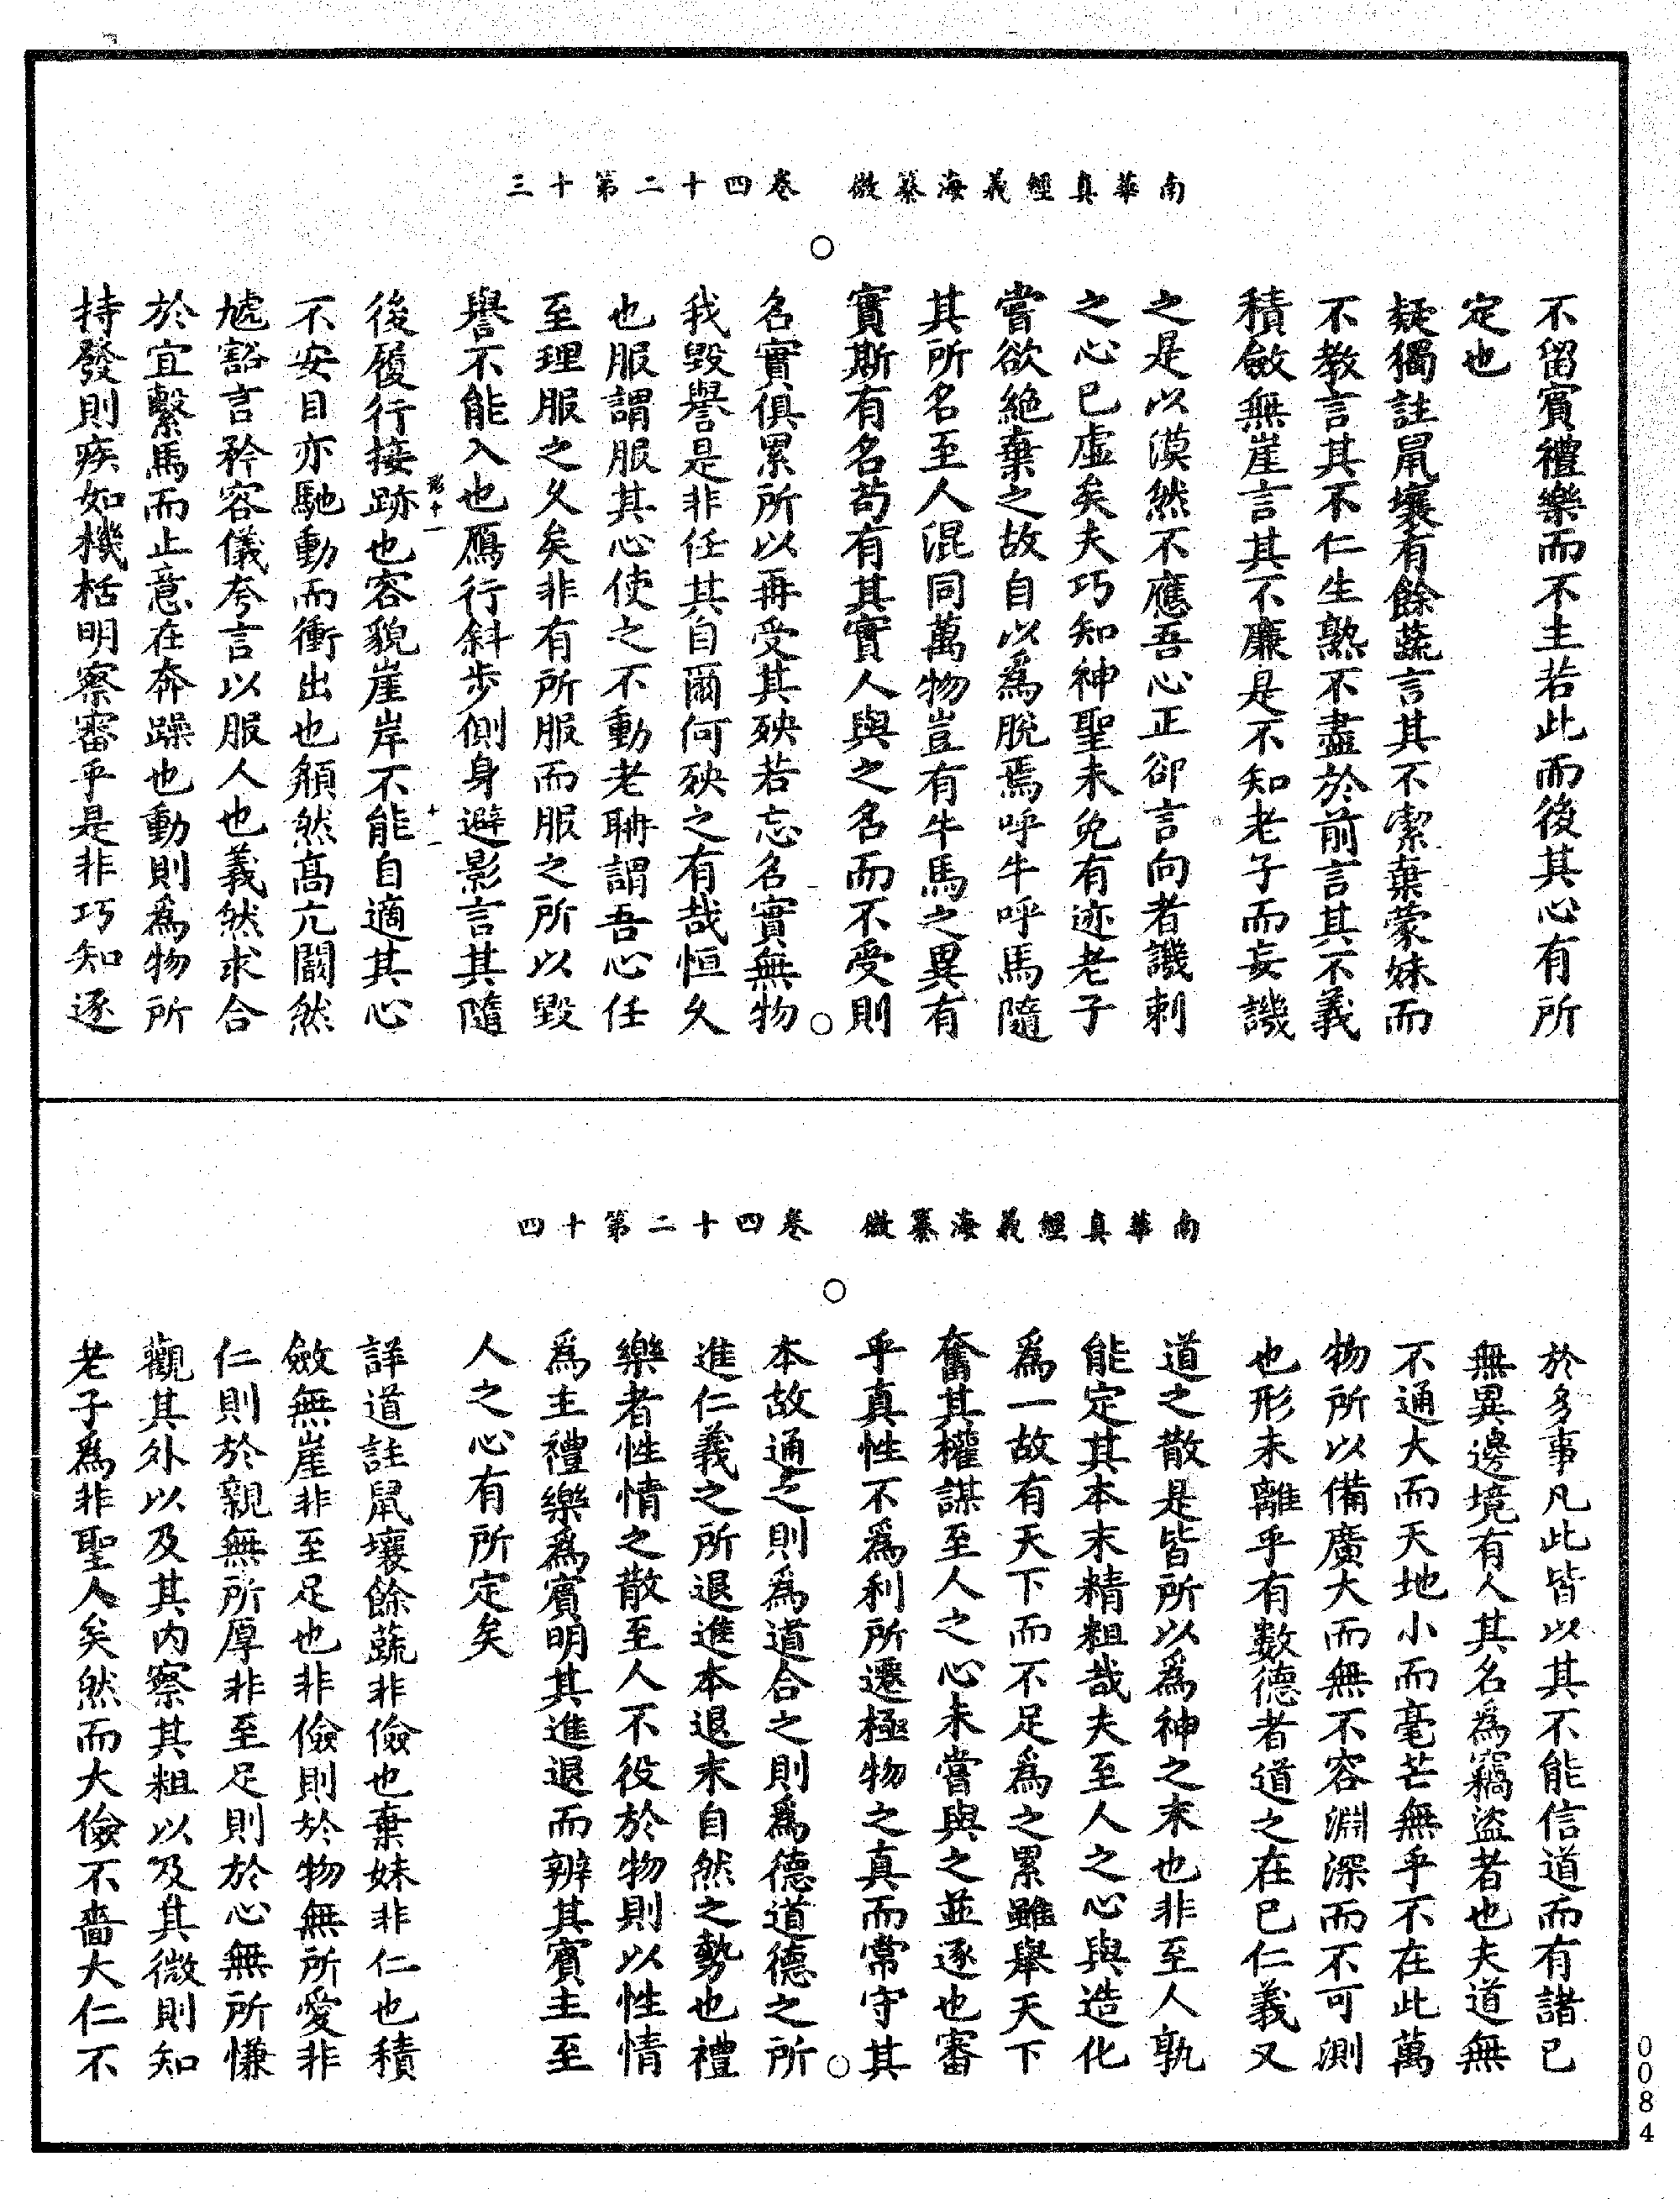 南華真經義海纂微　卷四十二第十三
不留賓禮樂而不主若此而後其心有所
定也
疑獨註鼠壤有餘蔬言其不潔棄蒙妹而
不教言其不仁生熟不盡於前言其不義
積斂無崖言其不廉是不知老子而妄譏
之是以漠然不應吾心正卻言向者譏刺
之心已虛矣夫巧知神聖未免有迹老子
嘗欲絕棄之故自以為脫焉呼牛呼馬隨
其所名至人混同萬物豈有牛馬之異有
實斯有名苟有其實人與之名而不受則
名實俱累所以再受其殃若忘名實無物
我毀譽是非任其自爾何殃之有哉恒久
也服謂服其心使之不動老聃謂吾心任
至理服之久矣非有所服而服之所以毀
譽不能入也鴈行斜步側身避影言其隨
後履行接跡也容貌崖岸不能自適其心
不安目亦馳動而衝出也頯然高亢闞然
虓豁言矜容儀夸言以服人也義然求合
於宜繫馬而止意在奔躁也動則為物所
持發則疾如機栝明察審乎是非巧知逐
南華真經義海纂微　卷四十二第十四
於多事凡此皆以其不能信道而有諸已
無異邊境有人其名為竊盜者也夫道無
不通大而天地小而毫芒無乎不在此萬
物所以備廣大而無不容淵深而不可測
也形未離乎有數德者道之在已仁義又
道之散是皆所以為神之末也非至人孰
能定其本末精粗哉夫至人之心與造化
為一故有天下而不足為之累雖舉天下
奮其權謀至人之心未嘗與之並逐也審
乎真性不為利所遷極物之真而常守其
本故通之則為道合之則為德道德之所
進仁義之所退進本退末自然之勢也禮
樂者性情之散至人不役於物則以性情
為主禮樂為賓明其進退而辨其賓主至
人之心有所定矣
詳道註鼠壤餘蔬非儉也棄妹非仁也積
斂無崖非至足也非儉則於物無所愛非
仁則於親無所厚非至足則於心無所慊
觀其外以及其內察其粗以及其微則知
老子為非聖人矣然而大儉不嗇大仁不
0084